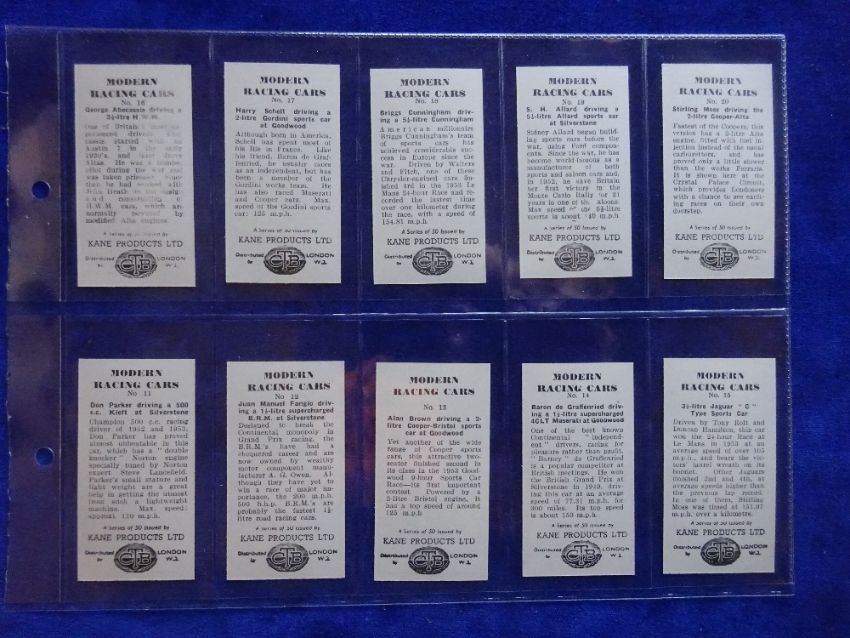 MODERN
RACING CARS
No. 16
George Abecassis driving a
2½-litre H.W.M.
One of Britain's most
driver,
started with an
Austin 7 in the early
1930's, and later drove
Altas. He was a bomber
pilot during the war and
was taken prisoner. Since
then he had worked with
John Heath on the design
and construction of
H.W.M. cars, which are
normally powered by
modified Alta engines.
A Series of 50 Issued by
KANE PRODUCTS LTD
Distributed by CTB LONDON W.1.
MODERN
RACING CARS
No. 17
Harry Schell driving a
2-litre Gordini sports car
at Goodwood
Although born in America,
Schell has spent most of
his life in France. Like
his friend, Baron de Graf-
fenried, he usually races
as an independent, but has
been a member of the
Gordini works team. He
has also raced Maserati
and Cooper cars. Max.
speed of the Gordini sports
car: 125 m.p.h.
A Series of 50 Issued by
KANE PRODUCTS LTD
Distributed by CTB LONDON W.1.
MODERN
RACING CARS
No. 18
Briggs Cunningham driv-
ing a 5½-litre Cunningham
American millionaire
Briggs Cunningham's team
of sports cars has
achieved considerable suc-
cess in Europe since the
war. Driven by Walters
and Fitch, one of these
Chrysler-engined cars fin-
ished 3rd in the 1953 Le
Mans 24-hour Race and re-
corded the fastest time
over one kilometre during
the race, with a speed of
154.81 m.p.h.
A Series of 50 Issued by
KANE PRODUCTS LTD
Distributed by CTB LONDON W.1.
MODERN
RACING CARS
No. 19
S. H. Allard driving a
5½-litre Allard sports car
at Silverstone
Sidney Allard began build-
ing sports cars before the
war, using Ford compon-
ents. Since the war, he has
become world-famous as a
manufacturer of both
sports and saloon cars and,
in 1952, he gave Britain
her first victory in the
Monte Carlo Rally for 21
years in one of his saloons.
Max speed of the 5½-litre
sports is about 140 m.p.h.
A Series of 50 Issued by
KANE PRODUCTS LTD
Distributed by CTB LONDON W.1.
MODERN
RACING CARS
No. 20
Stirling Moss driving the
2-litre Cooper-Alta
Fastest of the Coopers, this
version has a 2-litre Alta
engine, fitted with fuel in-
jection instead of the usual
carburettors, and has
proved only a little slower
than the works Ferraris.
It is shown here at the
Crystal Palace Circuit,
which provides Londoners
with a chance to see excit-
ing races on their own
doorstep.
A Series of 50 Issued by
KANE PRODUCTS LTD
Distributed by CTB LONDON W.1.
MODERN
RACING CARS
No. 11
Don Parker driving a 500
c.c. Kieft at Silverstone
Champion 500 c.c. racing
driver of 1952 and 1953,
Don Parker has proved
almost unbeatable in this
car, which has a "double
knocker" Norton engine
specially tuned by Norton
expert Steve Lancefield.
Parker's small stature and
light weight are a great
help in getting the utmost
from such a lightweight
machine. Max. speed:
approx. 110 m.p.h.
A Series of 50 Issued by
KANE PRODUCTS LTD
Distributed by CTB LONDON W.1.
MODERN
RACING CARS
No. 12
Juan Manuel Fangio driving
a 1½-litre supercharged
B.R.M. at Silverstone
Designed to break the
Continental monopoly in
Grand Prix racing, the
B.R.M's have had a
chequered career and are
now owned by wealthy
motor component manu-
facturer A. G. Owen. Al-
though they have yet to
win a race of major im-
portance, the 200 m.p.h.
500 b.h.p. B.R.M.'s are
probably the fastest 1½-
litre road racing cars.
A Series of 50 Issued by
KANE PRODUCTS LTD
Distributed by CTB LONDON W.1.
MODERN
RACING CARS
No. 13
Alan Brown driving a 2-
litre Cooper-Bristol sports
car at Goodwood
Yet another of the wide
range of Cooper sports
cars, this attractive two-
seater finished second in
its class in the 1953 Good-
wood 9-hour Sports Car
Race—its first important
contest. Powered by a
2-litre Bristol engine, it
has a top speed of around
125 m.p.h
A Series of 50 Issued by
KANE PRODUCTS LTD
Distributed by CTB LONDON W.1.
MODERN
RACING CARS
No. 14
Baron de Graffenried driv-
ing a 1½-litre supercharged
4CLT Maserati at Goodwood
One of the best known
Continental "independ-
ent" drivers, racing for
pleasure rather than profit.
"Barney" de Graffenried
is a popular competitor at
British meetings. He won
the British Grand Prix at
Silverstone in 1949, driv-
ing this car at an average
speed of 77.31 m.p.h. for
300 miles. Its top speed
is about 150 m.p.h.
A Series of 50 Issued by
KANE PRODUCTS LTD
Distributed by CTB LONDON W.1.
MODERN
RACING CARS
No. 15
3½-litre Jaguar "C"
Type Sports Car
Driven by Tony Rolt and
Duncan Hamilton, this car
won the 24-hour Race at
Le Mans in 1953 at an
average speed of over 105
m.p.h., and bears the vic-
tors' laurel wreath on its
bonnet. Other Jaguars
finished 2nd and 4th, at
average speeds higher than
the previous lap record.
In one of them, Stirling
Moss was timed at 151.97
m.p.h. over a kilometre.
A Series of 50 Issued by
KANE PRODUCTS LTD
Distributed by CTB LONDON W.1.